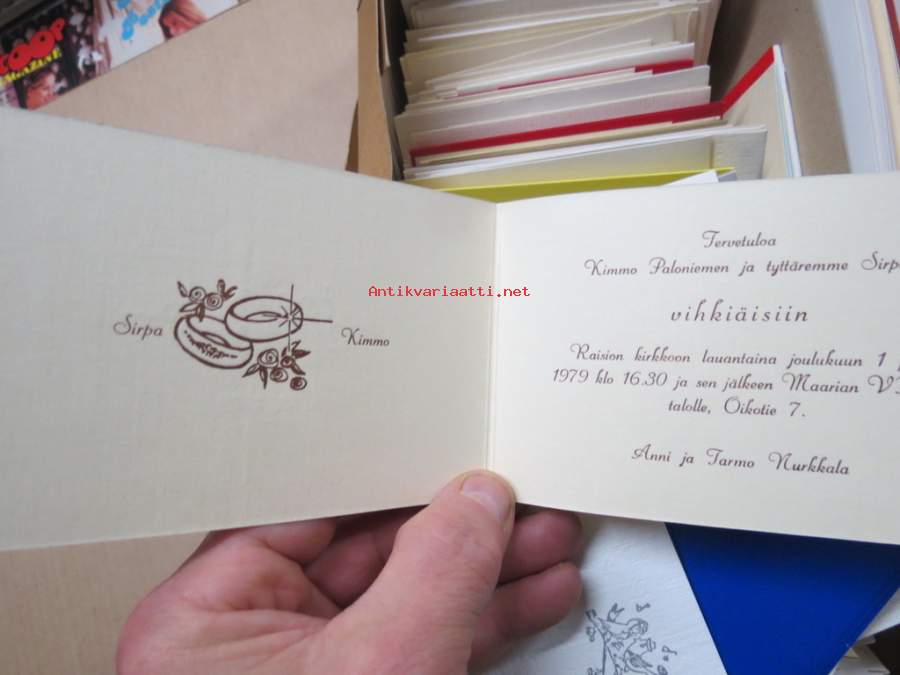 COOP
MAGAZINE
Antikvariaatti.net
Sirpa
Kimmo
Tervetuloa
Kimmo Paloniemen ja tyttäremme
vihkiäisiin
Raision kirkkoon lauantaina joulukuun 1
1979 klo 16.30 ja sen jälkeen Maarian
talolle, Oikotie 7.
Anni ja Tarmo Nurkkala